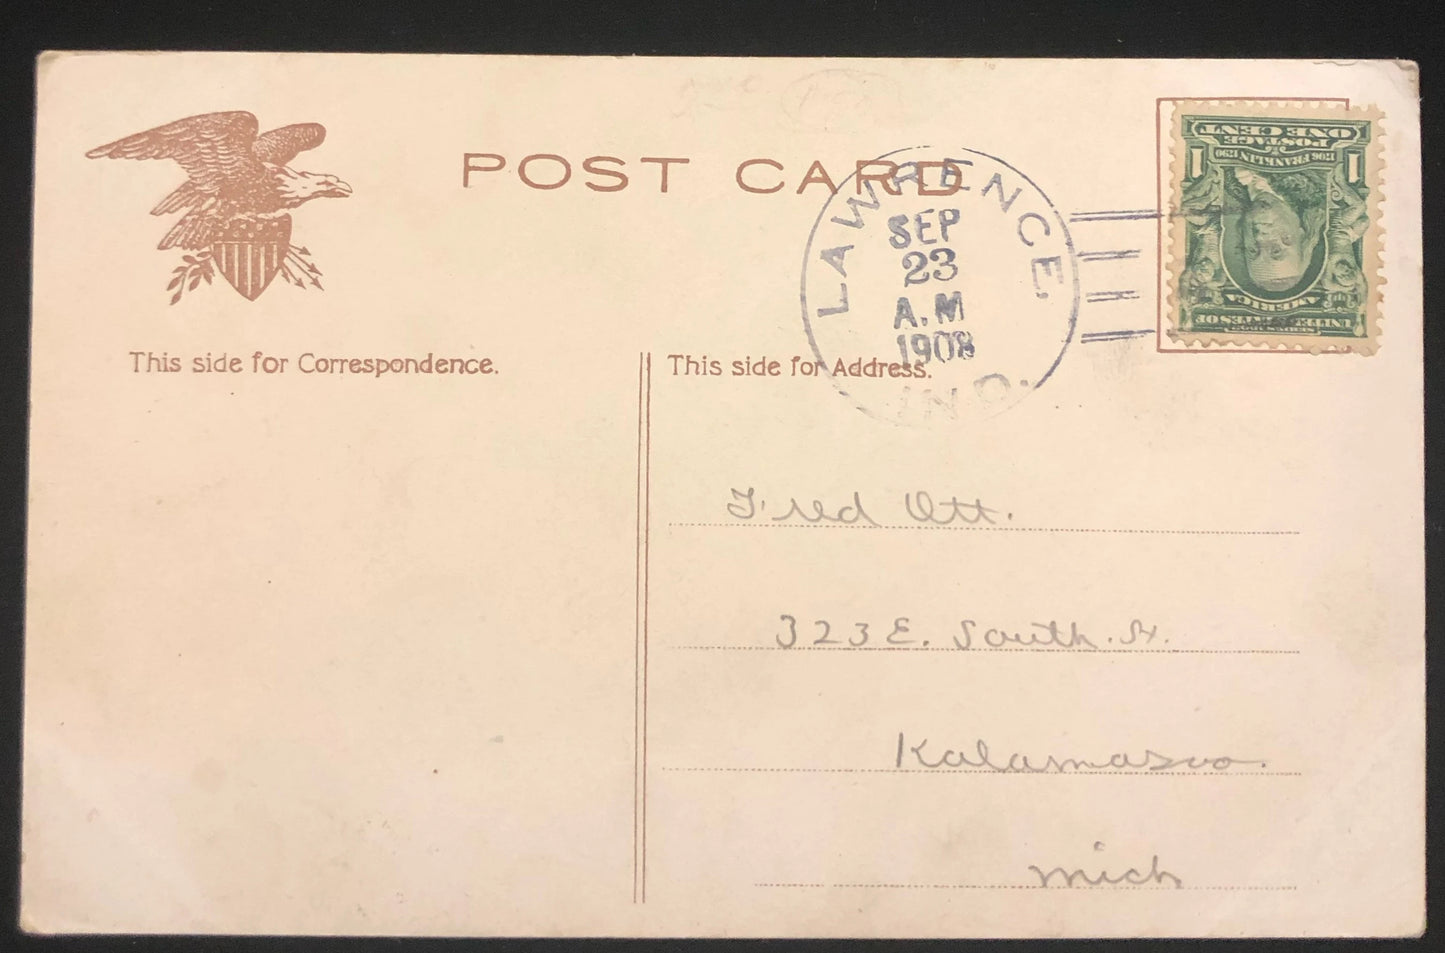 POST CARD
LAWRENCE.
SEP
23
A.M
1908
IND.
1
ONE CENT
1
POSTAGE
1706 FRANKLIN 1790
SERIES 1902
UNITED STATES OF
AMERICA
This side for Correspondence.
This side for Address.
Fred Ott.
323 E. South. St.
Kalamazoo.
Mich